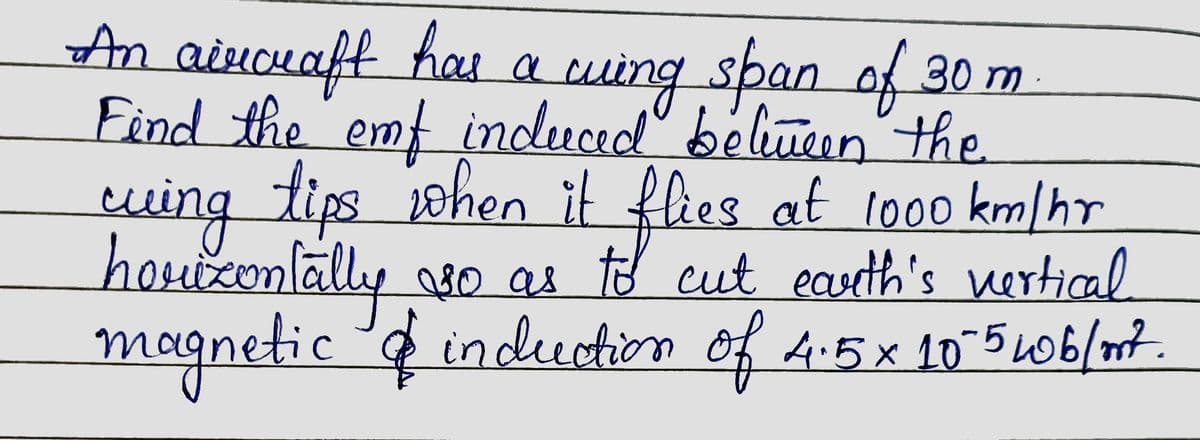 An aircraft has a wing span of 30 m.
Find the emf induced between the
wing tips when it flies at 1000 km/hr
horizontally so as to cut earth's vertical
magnetic induction of 4.5 x 10⁻⁵ wb/m².